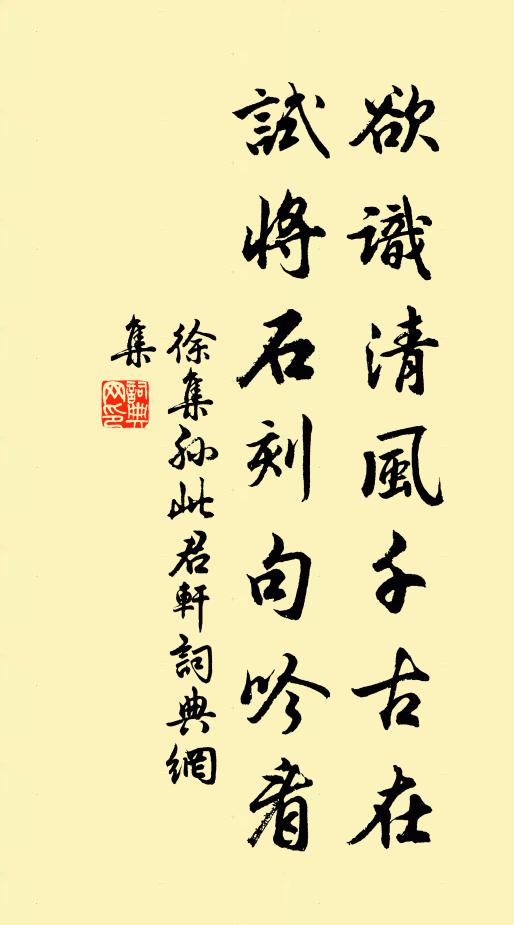 欲識清風千古在
試將石刻句吟看
徐集孫此君軒詞典網
集
詞典
网印